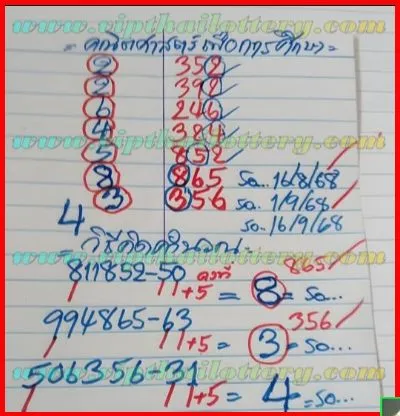 www.vipthailottery.com
= คณิตศาสตร์เพื่อการศึกษา =
2 352 ✓
2 392 ✓
6 246 ✓
4 384 ✓
5 852 ✓
8 865 รอ... 16/8/68
3 356 รอ... 1/9/68
4 รอ... 16/9/68
www.vipthailottery.com
= วิธีคิดคำนวณ =
811852-50 คงที่ 865 ✓
11+5 = 8 = รอ...
994865-63 356 ✓
11+5 = 3 = รอ...
506356-31
11+5 = 4 = รอ...
www.vipthailottery.com